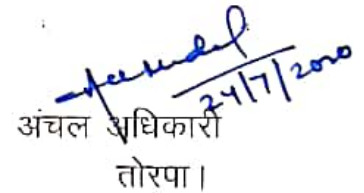 24/7/2020
अंचल अधिकारी
तोरपा।